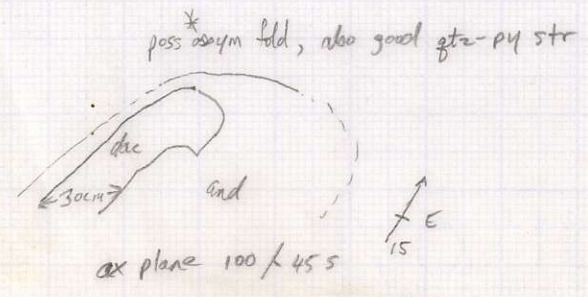 poss *asym fold, also good qtz-py str
dac
30cm
and
E
15
ax plane 100/45 S